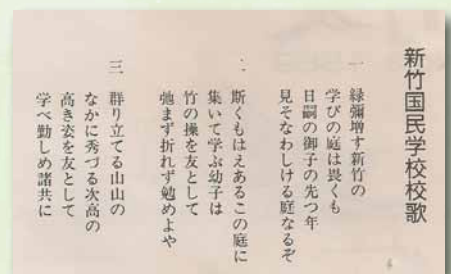 新竹国民学校校歌
一 緑彌増す新竹の
学びの庭は畏くも
日嗣の御子の先つ年
見そなわしける庭なるぞ
二、斯くもはえあるこの庭に
集いて学ぶ幼子は
竹の操を友として
弛まず折れず勉めよや
三 群り立てる山山の
なかに秀づる次高の
高き姿を友として
学べ勤しめ諸共に